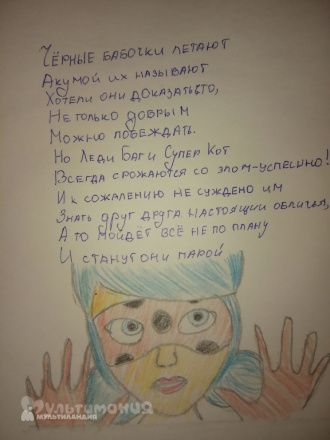 Чёрные бабочки летают
Акумой их называют
Хотели они доказать то,
Не только добрым
Можно побеждать.
Но Леди Баг и Супер Кот
Всегда срожаются со злом-успешно!
И к сожалению не суждено им
Знать друг друга настоящии обличая,
А то пойдёт всё не по плану
И станут они парой
Мультимания
МУЛЬТИЛАНДИЯ